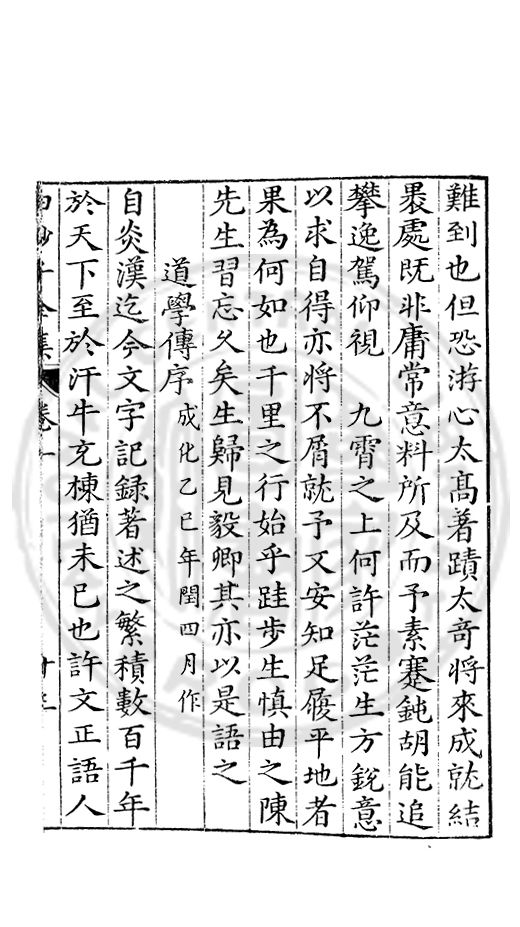 難到也但恐游心太髙著蹟太奇將來成就結
裠處既非庸常意料所及而予素蹇鈍胡能追
攀逸駕仰視九霄之上何許茫茫生方銳意
以求自得亦將不屑就予又安知足履平地者
果為何如也千里之行始乎跬步生慎由之陳
先生習忘久矣生歸見毅卿其亦以是語之
道學傳序成化乙巳年閏四月作
自炎漢迄今文字記録著述之繁積數百千年
於天下至於汗牛充棟猶未已也許文正語人
白沙子全集 卷一 十三